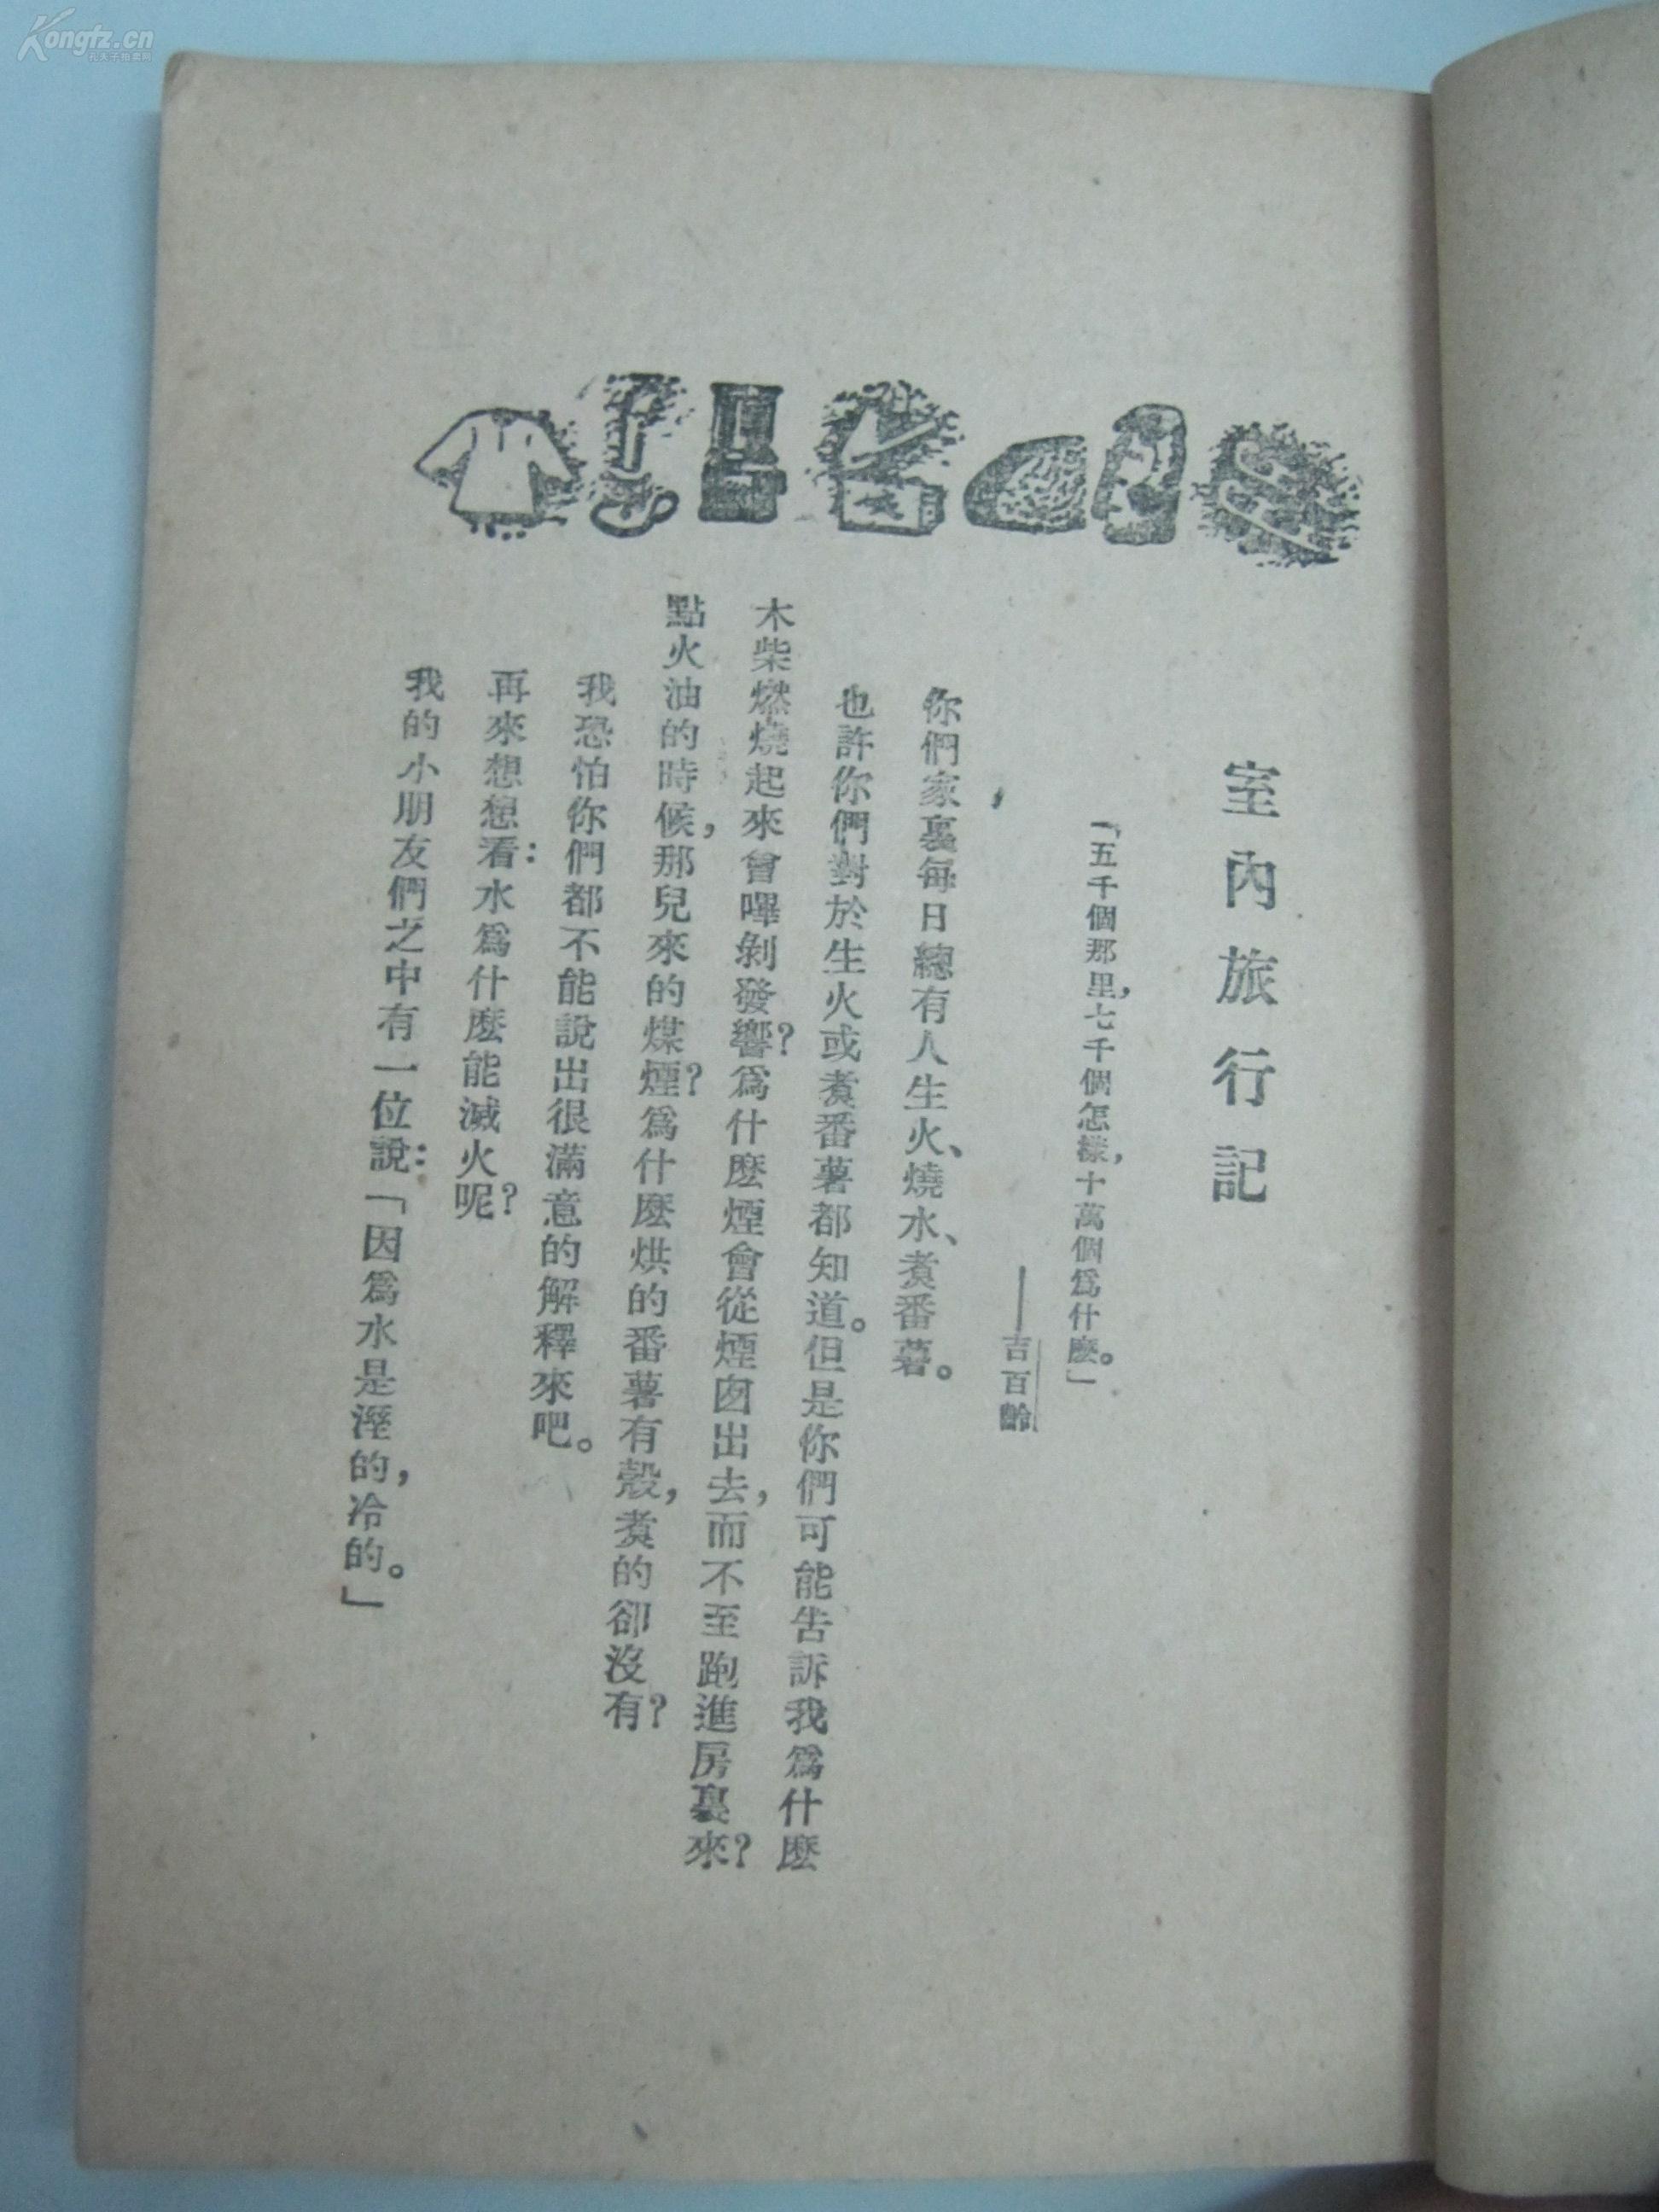 Kongfz.cn
孔夫子拍卖网
室內旅行記
「五千個那里，七千個怎樣，十萬個爲什麼。」
——吉百齡
你們家裏每日總有人生火、燒水、煮番薯。
也許你們對於生火或煮番薯都知道。但是你們可能告訴我爲什麼
木柴燃燒起來會嗶剝發響？爲什麼煙會從煙囱出去，而不至跑進房裏來？
點火油的時候，那兒來的煤煙？爲什麼烘的番薯有殼，煮的卻沒有？
我恐怕你們都不能說出很滿意的解釋來吧。
再來想想看：水爲什麼能滅火呢？
我的小朋友們之中有一位說：「因爲水是溼的，冷的。」